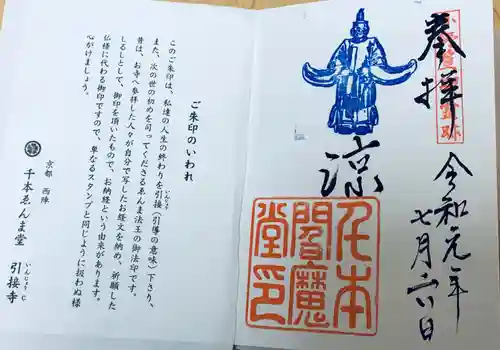 奉拝
令和元年
七月六日
涼
千本
閻魔
堂印
ご朱印のいわれ
このご朱印は、私達の人生の終わりを引接(引導の意味)下さり、
いんじょう
また、次の世の初めを司ってくださるゑんま法王の御法印です。
昔は、お寺へ参拝した人々が自分で写したお経文を納め、祈願した
しるしとして、御印を頂いたもので、お納経という由来があります。
仏様に代わる御印ですので、単なるスタンプと同じように扱わぬ様
心がけましょう。
京都 西陣
千本ゑんま堂
引接寺
いんじょうじ